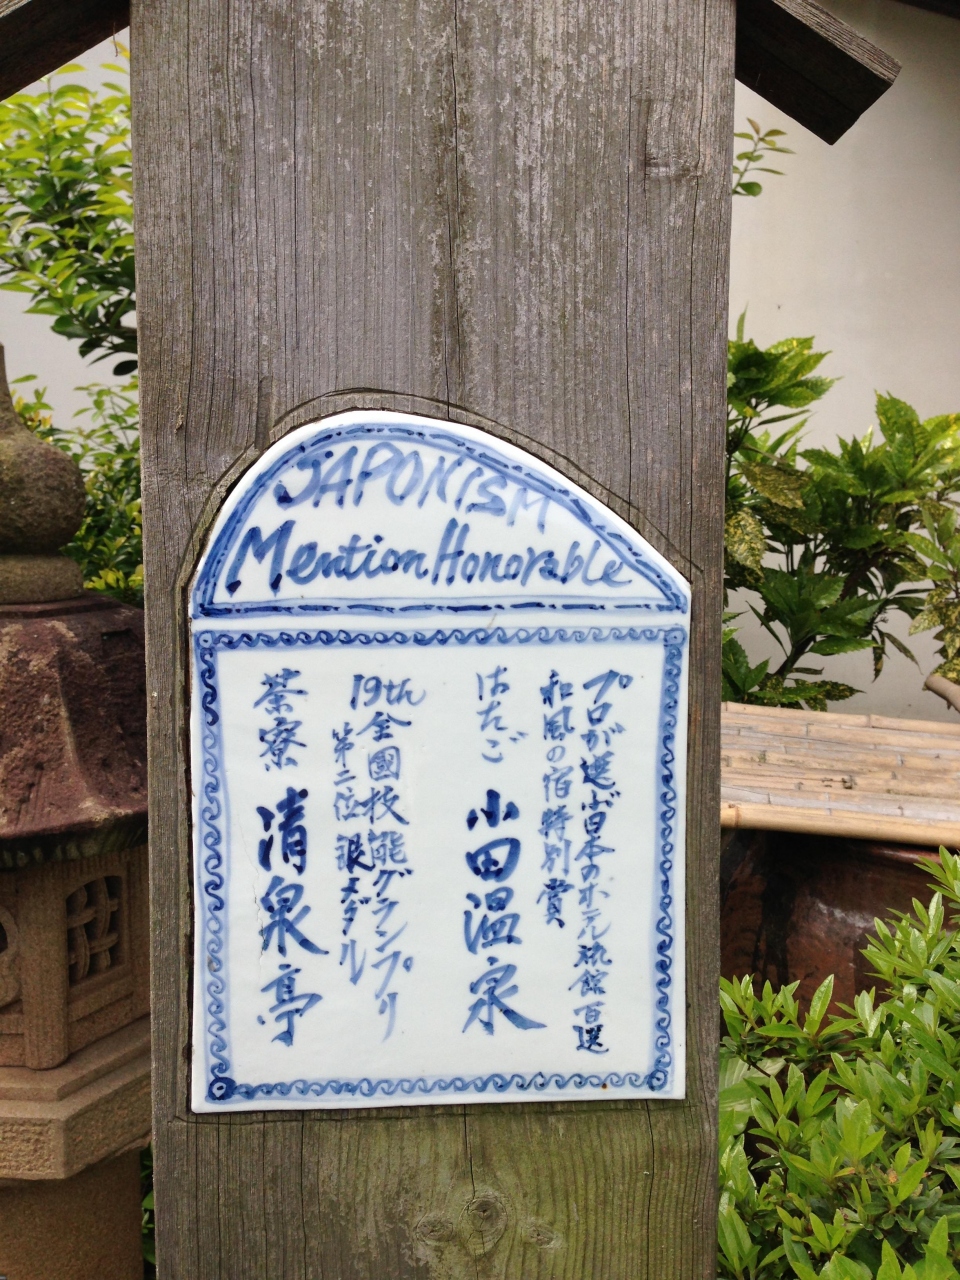 JAPONISM
Mention Honorable
プロが選ぶ日本のホテル旅館百選
和風の宿特別賞
はたご 小田温泉
19th 全國技能グランプリ
第二位 銀メダル
茶寮 清泉亭